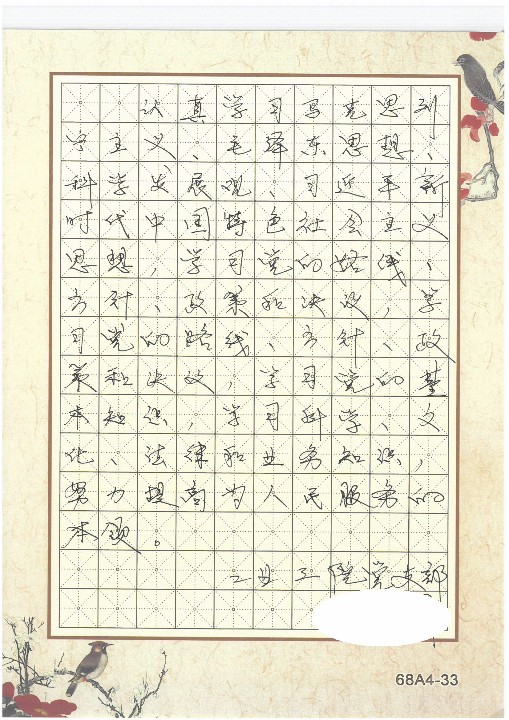 认真学习马克思列
宁主义、毛泽东思想、
科学发展观、习近平新
时代中国特色社会主义
思想，学习党的路线、
方针、政策和决议，学
习党的路线、方针、政
策和决议，学习党的基
本知识，学习科学、文
化、法律和业务知识，
努力提高为人民服务的
本领。
二〇工院党支部
68A4-33